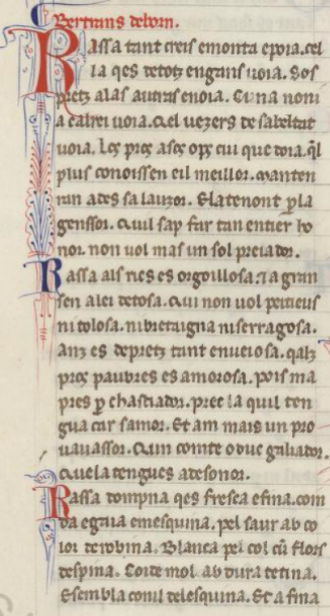 Bertrans delborn.
Rassa tant creis emonta epoia. cel
la qes detotz engans uoia. Sos
pretz alas autras enoia. Cuna noni
a cabrei uoia. Qel uezers de sabeltat
uoia. Los pros asos ops cui que coia. q̃l
plus conoissen eil meillor. Manten
nun ades salauzor. Elatenont ꝑla
gensor. Quil sap far tan entier ho
nor. non uol mas un sol preiador.
Rassa als rics es orgoillosa. ⁊a gran
sen alei detosa. Qui non uol peitieus
ni tolosa. nibretaigna niserragosa.
anz es depretz tant enueiosa. qals
pros paubres es amorosa. pois ma
pres ꝑ chastiador. prec la quil ten
gua car samor. Et am mais un pro
uauassor. Cun comte oduc galiador.
Quela tengues adesonor.
Rassa dompna qes fresca efina. com
da egaia emesquina. pel saur ab co
lor derobina. Blanca pel col cũ flors
despina. Coide mol ab dura tetina.
Esembla conil delesquina. Et a fina